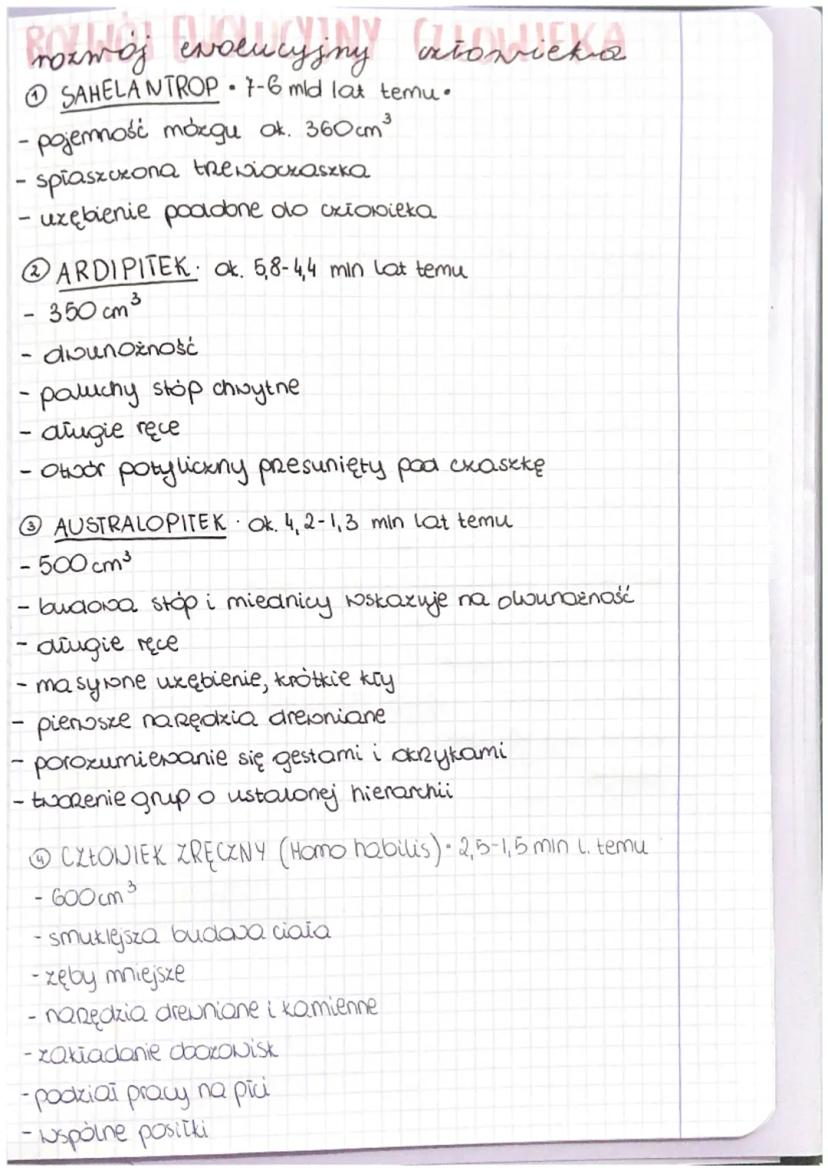 ROZWÓJ EWOLUCYJNY CZŁOWIEKA
rozwój ewolucyjny człowieka
① SAHELANTROP • 7-6 mld lat temu •
- pojemność mózgu ok. 360 cm³
- spłaszczona trzewioczaszka
- uzębienie podobne do człowieka
② ARDIPITEK · ok. 5,8-4,4 mln lat temu
- 350 cm³
- dwunożność
- paluchy stóp chwytne
- długie ręce
- otwór potyliczny presunięty pod czaszkę
③ AUSTRALOPITEK · ok. 4,2-1,3 mln lat temu
- 500 cm³
- budowa stóp i miednicy wskazuje na dwunożność
- długie ręce
- masywne uzębienie, krótkie kły
- pierwsze narzędzia drewniane
- porozumiewanie się gestami i okrzykami
- tworzenie grup o ustalonej hierarchii
④ CZŁOWIEK ZRĘCZNY (Homo habilis) • 2,5-1,5 mln l. temu
- 600 cm³
- smuklejsza budowa ciała
- zęby mniejsze
- narzędzia drewniane i kamienne
- zakładanie obozowisk
- podział pracy na płci
- wspólne posiłki